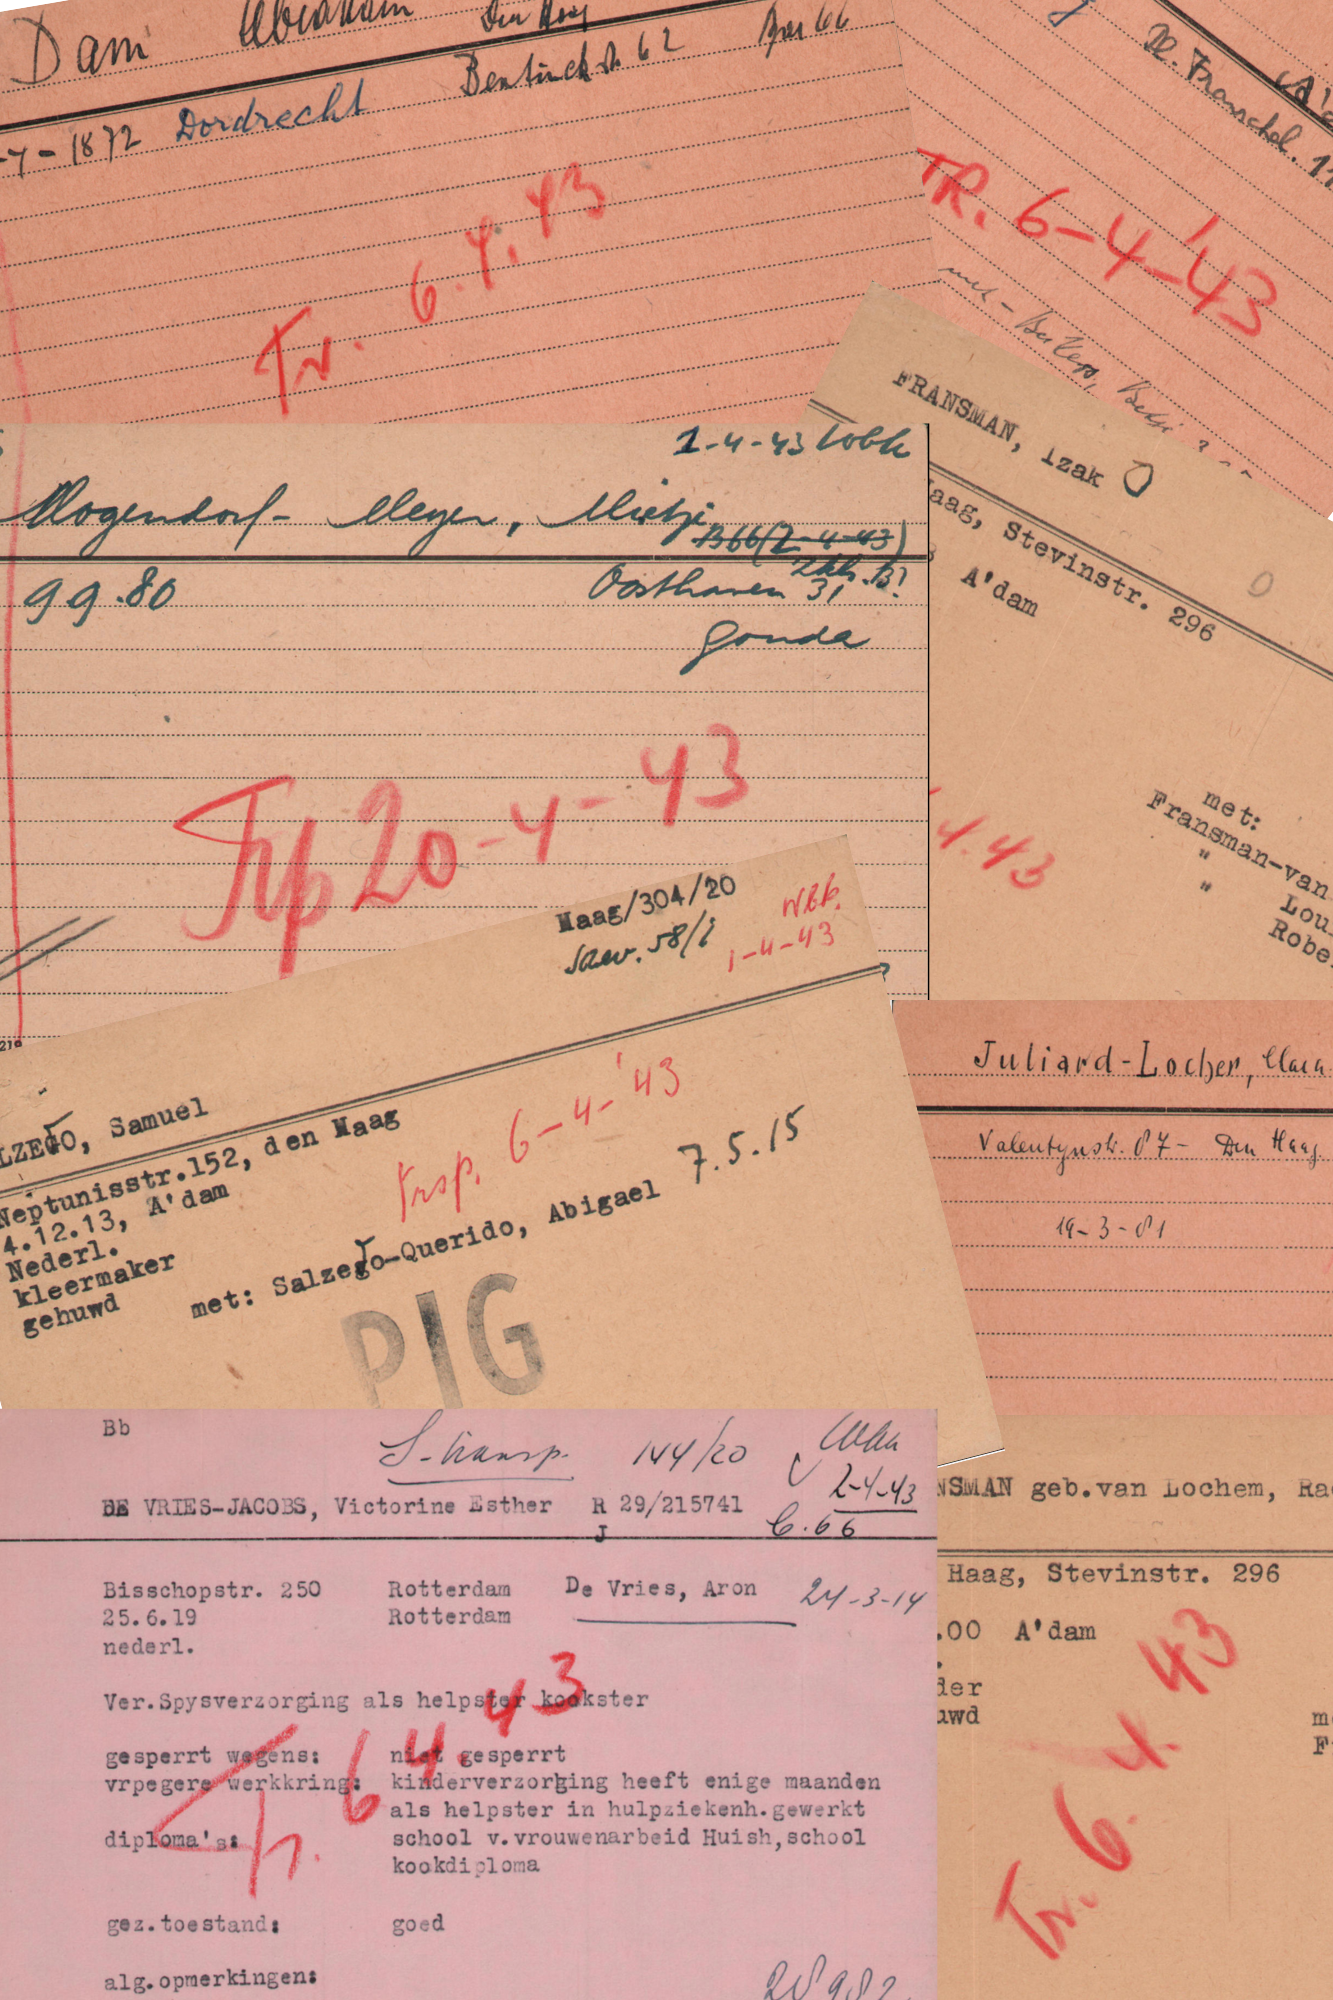 Dam Abraham Den Haag
Bentinckstr. 62
-7-1872 Dordrecht
Tr. 6.4.43
TR. 6-4-'43
FRANSMAN, Izak
Haag, Stevinstr. 296
A'dam
4.43
met:
Fransman-van
" Lou
" Robe
1-4-43 Wbk
Hogendorf- Meyer, Mietje
B66(2-4-43)
99.80 Oosthaven 31
Gouda
Trp 20-4-43
Haag/304/20
58/i
WBK.
1-4-43
LZEGO, Samuel
Neptunisstr.152, den Haag
4.12.13, A'dam
Nederl.
kleermaker
gehuwd
met: Salzedo-Querido, Abigael 7.5.15
Trsp. 6-4-'43
PIG
Juliard-Locher, Clara
Valentynstr. 87- Den Haag
19-3-81
Bb
S-transp. 144/20
DE VRIES-JACOBS, Victorine Esther R 29/215741
J
2-4-43
b.66
Bisschopstr. 250 Rotterdam De Vries, Aron 24-3-14
25.6.19 Rotterdam
nederl.
Ver.Spysverzorging als helpster kookster
gesperrt wegens: niet gesperrt
vrpegere werkkring: kinderverzorging heeft enige maanden
als helpster in hulpziekenh.gewerkt
diploma's: school v.vrouwenarbeid Huish,school
kookdiploma
gez.toestand: goed
alg.opmerkingen:
Tr. 6 4.43
NSMAN geb.van Lochem, Ra
Haag, Stevinstr. 296
.00 A'dam
der
uwd
m
F
Tr. 6.4.43